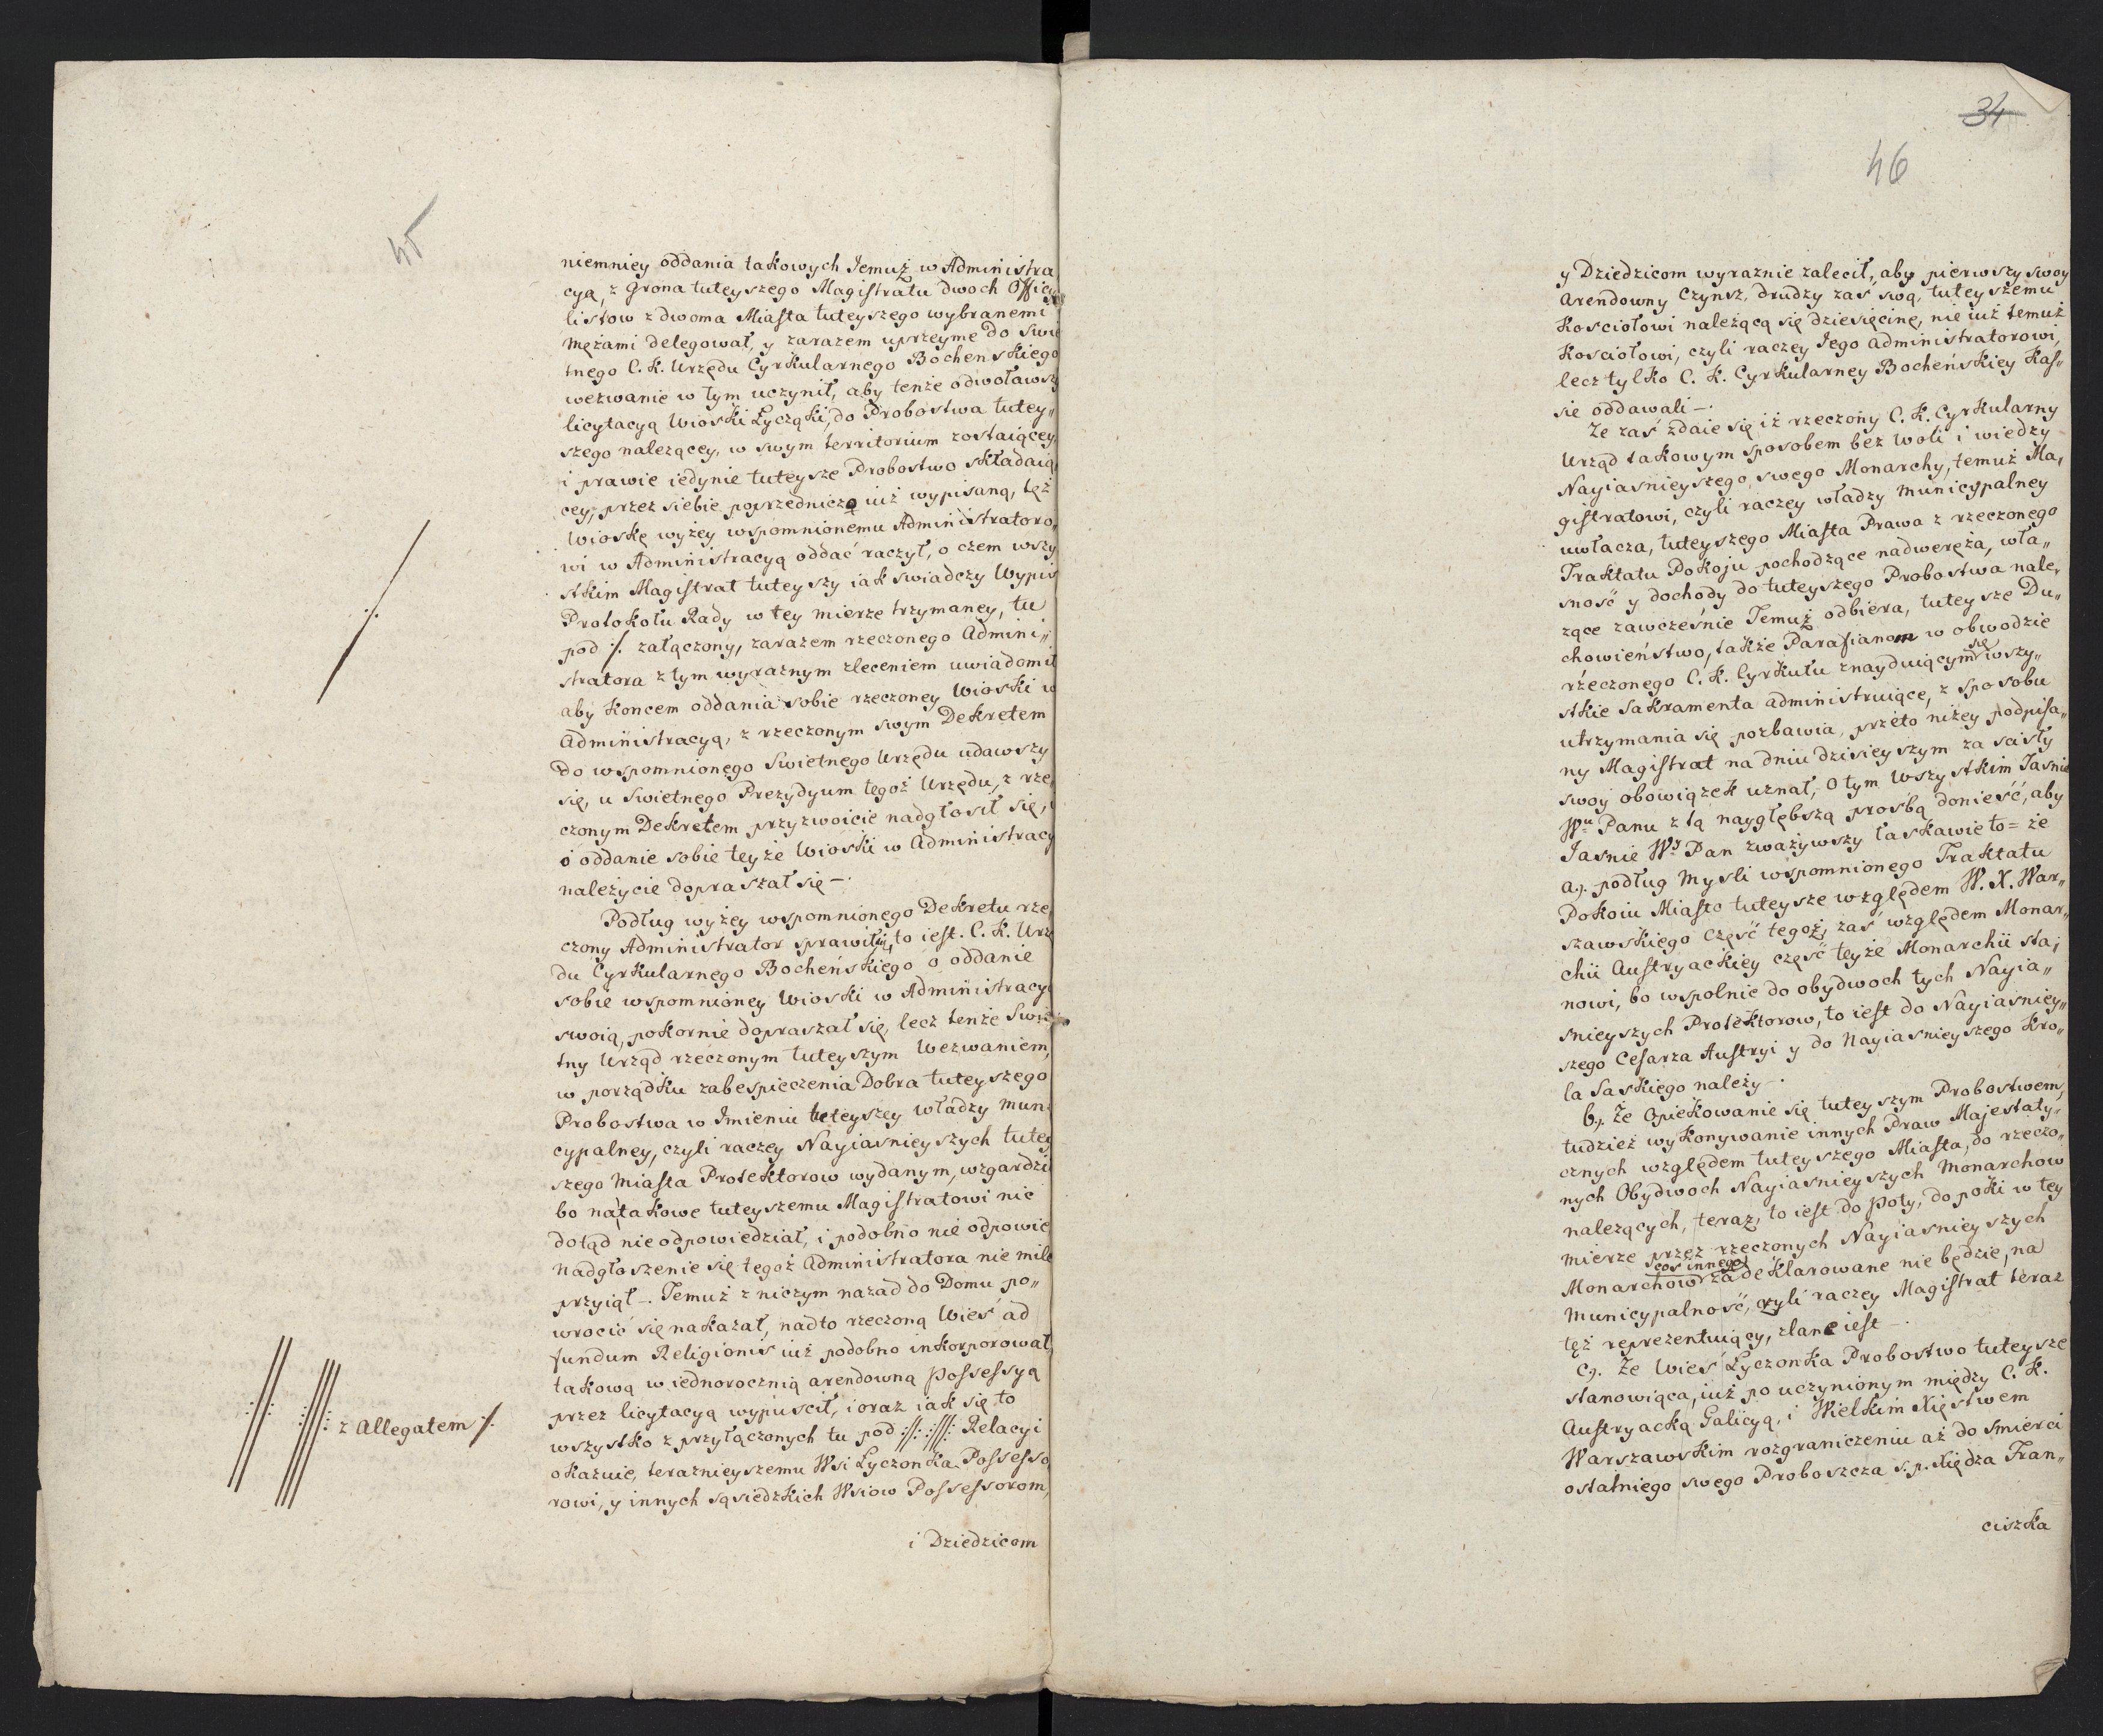 45
niemniey oddania takowych Jemuż w Administra
cyą, z Grona tuteyszego Magistratu dwoch Officya
listow z dwoma Miasta tuteyszego wybranemi
Mężami delegował, y zarazem uprzeyme do Swie
tnego C. K. Urzędu Cyrkularnego Bochenskiego
wezwanie w tym uczynił, aby tenże odwoławszy
licytacyą Wioski Łycząki, do Probostwa tutey„
szego należącey, w swym territorium zostaiącey,
i prawie iedynie tuteysze Probostwo składaią
cey, przez siebie poprzedniczo iuż wypisaną, też
Wioskę wyżey wspomnionemu Administratoro„
wi w Administracyą oddać raczył, o czem wszy
stkim Magistrat tuteyszy iak swiadczy Wypis
Protokołu Rady w tey mierze trzymaney, tu
pod ·/. załączony, zarazem rzeczonego Admini„
stratora z tym wyraznym zleceniem uwiadomił
aby koncem oddania sobie rzeczoney Wioski w
Administracyą, z rzeczonym swym Dekretem
Do wspomnionego Swietnego Urzędu udawszy
się, u Swietnego Prezydyum tegoż Urzędu, z rze„
czonym Dekretem przyzwoicie nadgłosił się,
o oddanie sobie teyże Wioski w Administracy
należycie dopraszał się –.
Podług wyżey wspomnionego Dekretu rze„
czony Administrator sprawił, to iest. C. K. Urzę
du Cyrkularnego Bocheńskiego o oddanie
sobie wspomnioney Wioski w Administracyą
swoią, pokornie dopraszał się, lecz tenże Swie
tny Urząd rzeczonym tuteyszym Wezwaniem,
w porządku zabespieczenia Dobra tuteyszego
Probostwa w Imieniu tuteyszey władzy Muni
cypalney, czyli raczey Nayiasnieyszych tutey
szego Miasta Protektorow wydanym, wzgardził
bo na takowe tuteyszemu Magistratowi nic
dotąd nie odpowiedział, i podobno nie odpowie
Nadgłoszenie się tegoż Administratora nie mile
przyiął –. Temuż z niczym nazad do Domu po„
wrocić się nakazał, nadto rzeczoną Wieś ad
fundum Religionis iuż podobno inkorporował,
takową w iednorocznią arendowną Possessyą
przez licytacyą wypuscił, i oraz iak się to
wszystko z przyłączonych tu pod ://: :///: Relacyi
okazuie, teraznieyszemu Wsi Łyczonka Possesso
rowi, y innych sąsiedzkich Wsiow Possessorom,
i Dziedzicom
·/.
://: :///: z Allegatem ·/.
34
46
y Dziedzicom wyraznie zalecił, aby pierwszy swoy
Arendowny Czynsz, drudzy zaś swą, tuteyszemu
Kosciołowi należącą się dziesięcinę, nie iuż temuż
Kosciołowi, czyli raczey Jego Administratorowi,
lecz tylko C. K. Cyrkularney Bocheńskiey Kas„
sie oddawali –.
Ze zaś zdaie się iż rzeczony C. K. Cyrkularny
Urząd takowym sposobem bez Woli i wiedzy
Nayiasnieyszego, swego Monarchy, temuż Ma„
gistratowi, czyli raczey władzy Municypalney
uwłacza, tuteyszego Miasta Prawa z rzeczonego
Traktatu Pokoju pochodzące nadweręża, wła„
sność y dochody do tuteyszego Probostwa nale„
zące zawcześnie Temuż odbiera, tuteysze Du„
chowieństwo, także Parafianom w obwodzie
rzeczonego C. K. Cyrkułu znayduiącym się wszy„
stkie Sakramenta administruiące, z sposobu
utrzymania się pozbawia, przeto niżey podpisa„
ny Magistrat na dniu dzisieyszym za scisły
swoy obowiązek uznał, O tym wszystkim Jasnie
Wu Panu z tą naygłębszą prośbą donieść, aby
Jasnie Wy Pan zważywszy łaskawie to = że
a). podług Mysli wspomnionego Traktatu
Pokoiu Miasto tuteysze względem W. X. War„
szawskiego Część tegoż, zaś względem Monar„
chii Austryackiey część teyże Monarchii sta„
nowi, bo wspolnie do obydwoch tych Nayia„
snieyszych Protektorow, to iest do Nayiasniey„
szego Cesarza Austryi y do Nayiasnieyszego Kro„
la Saskiego należy –.
b). Ze Opiekowanie się tuteyszym Probostwem,
tudzież wykonywanie innych Praw Majestaty„
cznych względem tuteyszego Miasta, do rzeczo„
nych Obydwoch Nayiasnieyszych Monarchow
należących, teraz, to iest do poty, do poki w tey
mierze przez rzeczonych Nayiasnieyszych
Monarchow coś innego zadeklarowane nie będzie, na
Municypalność, czyli raczey Magistrat teraz
tęż reprezentuiący, zlane iest –.
c). Ze Wieś Łyczonka Probostwo tuteysze
stanowiąca, iuż po uczynionym między C. K.
Austryacką Galicyą, i Wielkim Xięstwem
Warszawskim rozgraniczeniu aż do Smierci
ostatniego swego Proboszcza s. p. Xiędza Fran„
ciszka